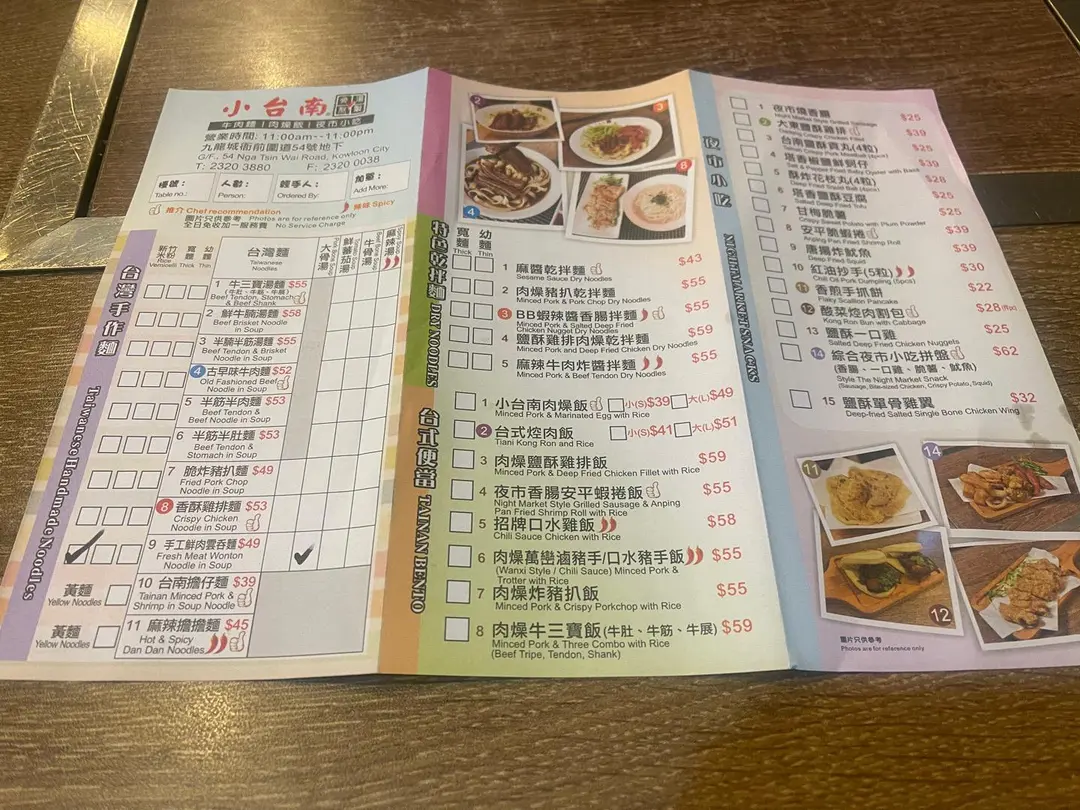 小台南
牛肉麵 | 肉燥飯 | 夜市小吃
營業時間: 11:00am~11:00pm
九龍城衙前圍道54號地下
G/F., 54 Nga Tsin Wai Road, Kowloon City
T: 2320 3880 F: 2320 0038
檯號:
Table no.:
人數:
Person:
經手人:
Ordered By:
加單:
Add More:
推介 Chef recommendation
辣味 Spicy
圖片只供參考 Photos are for reference only
全日免收加一服務費 No Service Charge
台灣手作麵 Taiwanese Handmade Noodles
新竹米粉 Rice Vermicelli
寬麵 Thick
幼麵 Thin
台灣麵
Taiwanese Noodles
大骨湯
鮮蕃茄湯
牛骨湯
麻辣湯
1 牛三寶湯麵 $55
(牛肚、牛筋、牛展)
Beef Tendon, Stomach
& Beef Shank
2 鮮牛腩湯麵 $58
Beef Brisket Noodle
in Soup
3 半腩半筋湯麵 $55
Beef Tendon & Brisket
Noodle in Soup
4 古早味牛肉麵 $52
Old Fashioned Beef
Noodle in Soup
5 半筋半肉麵 $53
Beef Tendon &
Beef Noodle in Soup
6 半筋半肚麵 $53
Beef Tendon &
Stomach in Soup
7 脆炸豬扒麵 $49
Fried Pork Chop
Noodle in Soup
8 香酥雞排麵 $53
Crispy Chicken
Noodle in Soup
9 手工鮮肉雲吞麵 $49
Fresh Meat Wonton
Noodle in Soup
黃麵
Yellow Noodles
10 台南擔仔麵 $39
Tainan Minced Pork &
Shrimp in Soup Noodle
黃麵
Yellow Noodles
11 麻辣擔擔麵 $45
Hot & Spicy
Dan Dan Noodles
2
3
4
8
特色乾拌麵 DRY NOODLES
寬麵 Thick
幼麵 Thin
1 麻醬乾拌麵 $43
Sesame Sauce Dry Noodles
2 肉燥豬扒乾拌麵 $55
Minced Pork & Pork Chop Dry Noodles
3 BB蝦辣醬香腸拌麵 $55
Minced Pork & Salted Deep Fried
Chicken Nugget Dry Noodles
4 鹽酥雞排肉燥乾拌麵 $59
Minced Pork and Deep Fried Chicken Dry Noodles
5 麻辣牛肉炸醬拌麵 $55
Minced Pork & Beef Tendon Dry Noodles
台式便當 TAINAN BENTO
1 小台南肉燥飯 小(S)$39 大(L)$49
Minced Pork & Marinated Egg with Rice
2 台式焢肉飯 小(S)$41 大(L)$51
Tiani Kong Ron and Rice
3 肉燥鹽酥雞排飯 $59
Minced Pork & Deep Fried Chicken Fillet with Rice
4 夜市香腸安平蝦捲飯 $55
Night Market Style Grilled Sausage & Anping
Pan Fried Shrimp Roll with Rice
5 招牌口水雞飯 $58
Chili Sauce Chicken with Rice
6 肉燥萬巒滷豬手/口水豬手飯 $55
(Wanxi Style / Chili Sauce) Minced Pork &
Trotter with Rice
7 肉燥炸豬扒飯 $55
Minced Pork & Crispy Porkchop with Rice
8 肉燥牛三寶飯(牛肚、牛筋、牛展) $59
Minced Pork & Three Combo with Rice
(Beef Tripe, Tendon, Shank)
夜市小吃 NIGHT MARKET SNACKS
1 夜市燒香腸 $25
Night Market Style Grilled Sausage
2 大東鹽酥雞排 $39
Crispy Chicken Fillet
3 台南鹽酥貢丸(4粒) $25
Tainan Crispy Pork Meatball (4pcs)
4 塔香椒鹽鮮蚵仔 $39
Salt & Pepper Fried Baby Oyster with Basil
5 酥炸花枝丸(4粒) $28
Deep Fried Squid Ball (4pcs)
6 塔香鹽酥豆腐 $25
Salted Deep Fried Tofu
7 甘梅脆薯 $25
Crispy Sweet Potato with Plum Powder
8 安平脆蝦捲 $39
Anping Pan Fried Shrimp Roll
9 醬揚炸魷魚 $39
Deep Fried Squid
10 紅油抄手(5粒) $30
Chili Oil Pork Dumpling (5pcs)
11 香煎手抓餅 $22
Flaky Scallion Pancake
12 酸菜焢肉割包 $28
Kong Ron Bun with Cabbage
13 鹽酥一口雞 $25
Salted Deep Fried Chicken Nuggets
14 綜合夜市小吃拼盤 $62
(香腸、一口雞、脆薯、魷魚)
Style The Night Market Snack
(Sausage, Bite-sized Chicken, Crispy Potato, Squid)
15 鹽酥單骨雞翼 $32
Deep-fried Salted Single Bone Chicken Wing
11
14
12
圖片只供參考
Photos are for reference only